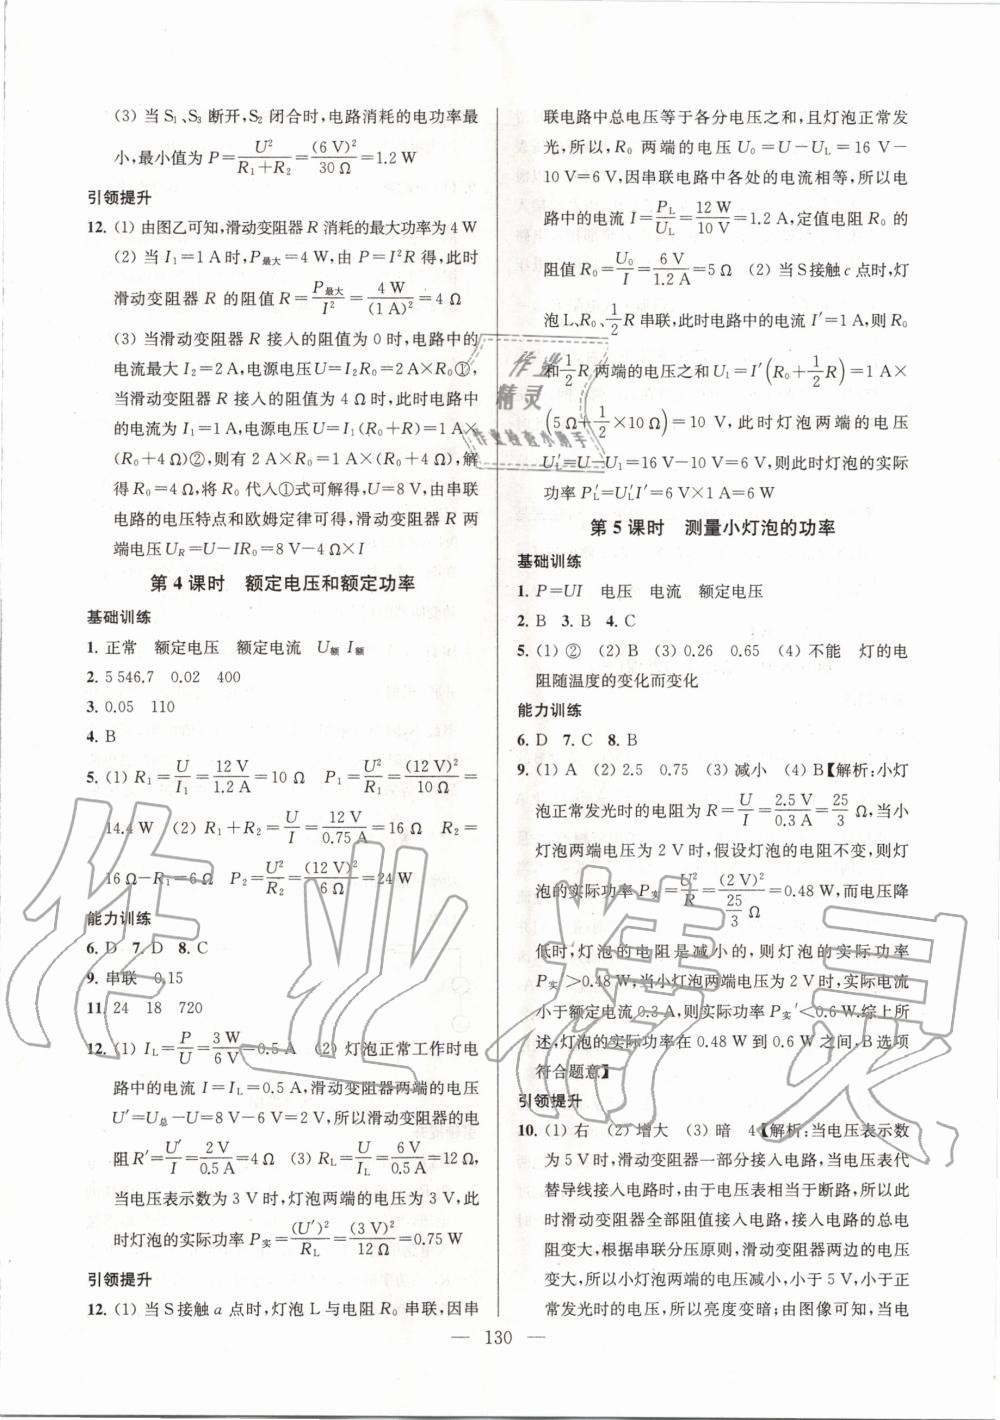 (3) 当 S₁、S₃ 断开,S₂ 闭合时,电路消耗的电功率最
小,最小值为 P=U²/(R₁+R₂)=(6 V)²/30 Ω=1.2 W
引领提升
12. (1) 由图乙可知,滑动变阻器 R 消耗的最大功率为 4 W
(2) 当 I₁=1 A 时,P最大=4 W,由 P=I²R 得,此时
滑动变阻器 R 的阻值 R=P最大/I²=4 W/(1 A)²=4 Ω
(3) 当滑动变阻器 R 接入的阻值为 0 时,电路中的
电流最大 I₂=2 A,电源电压 U=I₂R₀=2 A×R₀①,
当滑动变阻器 R 接入的阻值为 4 Ω 时,此时电路中
的电流为 I₁=1 A,电源电压 U=I₁(R₀+R)=1 A×
(R₀+4 Ω)②,则有 2 A×R₀=1 A×(R₀+4 Ω),解
得 R₀=4 Ω,将 R₀ 代入①式可解得,U=8 V,由串联
电路的电压特点和欧姆定律可得,滑动变阻器 R 两
端电压 U_R=U-IR₀=8 V-4 Ω×I
第 4 课时 额定电压和额定功率
基础训练
1. 正常 额定电压 额定电流 U额 I额
2. 5 546.7 0.02 400
3. 0.05 110
4. B
5. (1) R₁=U/I₁=12 V/1.2 A=10 Ω P₁=U²/R₁=(12 V)²/10 Ω=
14.4 W (2) R₁+R₂=U/I=12 V/0.75 A=16 Ω R₂=
16 Ω-R₁=6 Ω P₂=U²/R₂=(12 V)²/6 Ω=24 W
能力训练
6. D 7. D 8. C
9. 串联 0.15
11. 24 18 720
12. (1) I_L=P/U=3 W/6 V=0.5 A (2) 灯泡正常工作时电
路中的电流 I=I_L=0.5 A,滑动变阻器两端的电压
U′=U总-U=8 V-6 V=2 V,所以滑动变阻器的电
阻 R′=U′/I=2 V/0.5 A=4 Ω (3) R_L=U/I_L=6 V/0.5 A=12 Ω,
当电压表示数为 3 V 时,灯泡两端的电压为 3 V,此
时灯泡的实际功率 P实=(U′)²/R_L=(3 V)²/12 Ω=0.75 W
引领提升
12. (1) 当 S 接触 a 点时,灯泡 L 与电阻 R₀ 串联,因串
联电路中总电压等于各分电压之和,且灯泡正常发
光,所以,R₀ 两端的电压 U₀=U-U_L=16 V-
10 V=6 V,因串联电路中各处的电流相等,所以电
路中的电流 I=P_L/U_L=12 W/10 V=1.2 A,定值电阻 R₀ 的
阻值 R₀=U₀/I=6 V/1.2 A=5 Ω (2) 当 S 接触 c 点时,灯
泡 L、R₀、1/2 R 串联,此时电路中的电流 I′=1 A,则 R₀
和 1/2 R 两端的电压之和 U₁=I′(R₀+1/2 R)=1 A×
(5 Ω+1/2×10 Ω)=10 V,此时灯泡两端的电压
U′_L=U-U₁=16 V-10 V=6 V,则此时灯泡的实际
功率 P′_L=U′_L I′=6 V×1 A=6 W
第 5 课时 测量小灯泡的功率
基础训练
1. P=UI 电压 电流 额定电压
2. B 3. B 4. C
5. (1) ② (2) B (3) 0.26 0.65 (4) 不能 灯的电
阻随温度的变化而变化
能力训练
6. D 7. C 8. B
9. (1) A (2) 2.5 0.75 (3) 减小 (4) B【解析:小灯
泡正常发光时的电阻为 R=U/I=2.5 V/0.3 A=25/3 Ω,当小
灯泡两端电压为 2 V 时,假设灯泡的电阻不变,则灯
泡的实际功率 P实=U²/R=(2 V)²/(25/3 Ω)=0.48 W,而电压降
低时,灯泡的电阻是减小的,则灯泡的实际功率
P实>0.48 W;当小灯泡两端电压为 2 V 时,实际电流
小于额定电流 0.3 A,则实际功率 P实′<0.6 W.综上所
述,灯泡的实际功率在 0.48 W 到 0.6 W 之间,B 选项
符合题意】
引领提升
10. (1) 右 (2) 增大 (3) 暗 4【解析:当电压表示数
为 5 V 时,滑动变阻器一部分接入电路,当电压表代
替导线接入电路时,由于电压表相当于断路,所以此
时滑动变阻器全部阻值接入电路,接入电路的总电
阻变大,根据串联分压原则,滑动变阻器两边的电压
变大,所以小灯泡两端的电压变小,小于 5 V,小于正
常发光时的电压,所以亮度变暗;由图像可知,当电
— 130 —
作业
精灵
作业检查小助手
作业精灵